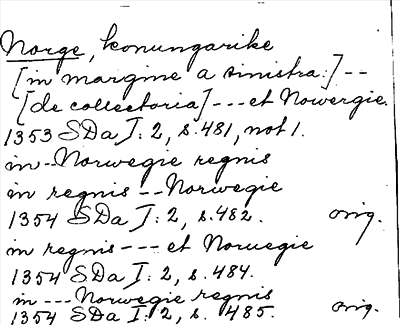 Norge, konungarike
[in margine a sinistra:]--
[de collectoria]---et Nowergie.
1353 SDa I:2, s.481, not 1.
in-Norwegie regnis
in regnis--Norwegie
1354 SDa I:2, s.482. orig.
in regnis---et Noruegie
1354 SDa I:2, s.484.
in ---Norwegie regnis
1354 SDa I:2, s. 485. orig.